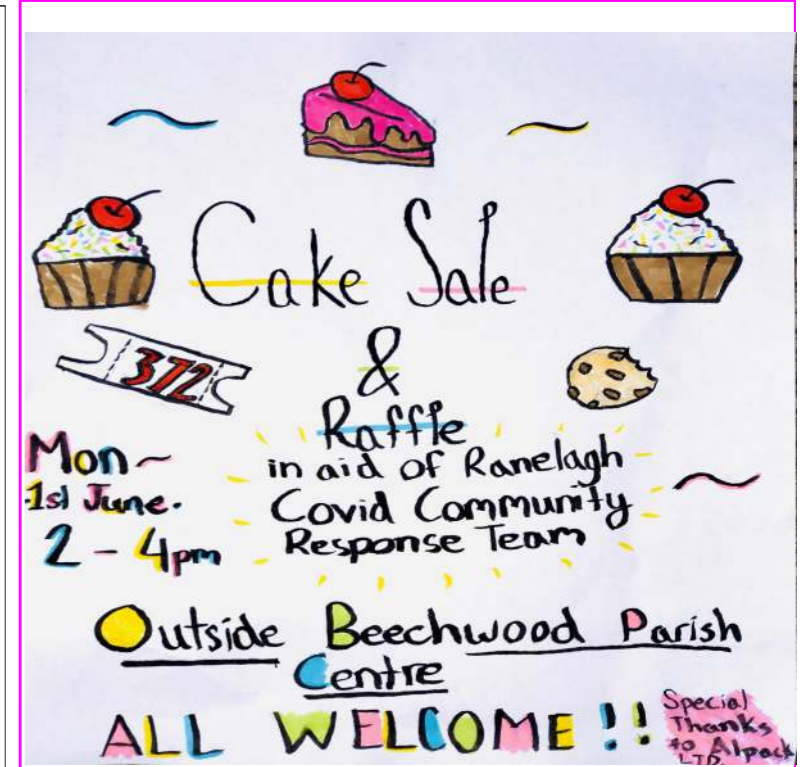 Cake Sale
&
372
Raffle
in aid of Ranelagh
Covid Community
Response Team
Mon~
1st June.
2 - 4pm
Outside Beechwood Parish
Centre
ALL WELCOME!!
Special
Thanks
to Alpack
LTD.